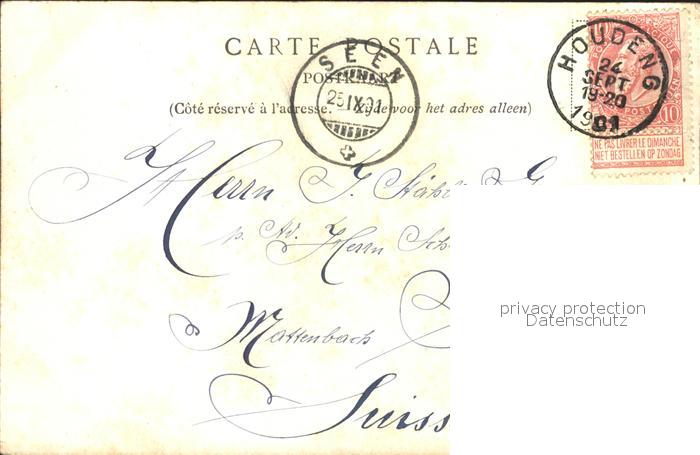 CARTE POSTALE
POSTKAART
(Côté réservé à l'adresse. Zijde voor het adres alleen)
SEEN
25.IX.01
HOUDENG
24
SEPT
19-20
1901
10
NE PAS LIVRER LE DIMANCHE
NIET BESTELLEN OP ZONDAG
Herrn J.
p. Ad. Herrn
Mattenbach
Suiss
privacy protection
Datenschutz